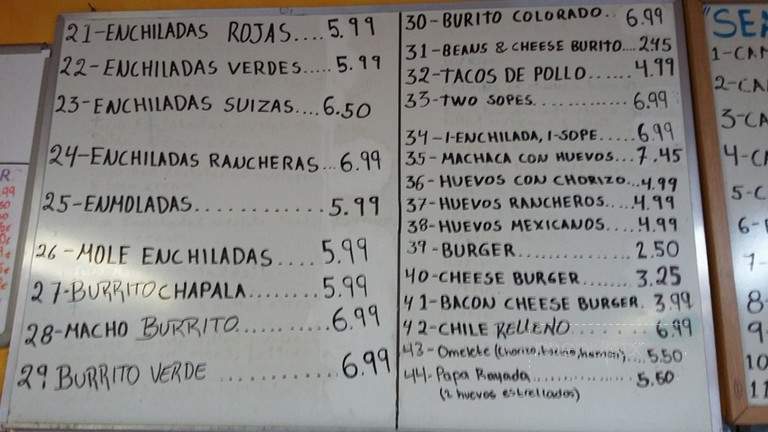 21-ENCHILADAS ROJAS....5.99
22-ENCHILADAS VERDES.....5.99
23-ENCHILADAS SUIZAS....6.50
24-ENCHILADAS RANCHERAS...6.99
25-ENMOLADAS............5.99
26-MOLE ENCHILADAS....5.99
27-BURRITO CHAPALA........5.99
28-MACHO BURRITO..........6.99
29 BURRITO VERDE ............6.99
30-BURITO COLORADO..6.99
31-BEANS & CHEESE BURITO....2.45
32-TACOS DE POLLO......4.99
33-TWO SOPES.............6.99
34-1-ENCHILADA, 1-SOPE.....6.99
35-MACHACA CON HUEVOS...7.45
36-HUEVOS CON CHORIZO...4.99
37-HUEVOS RANCHEROS....4.99
38-HUEVOS MEXICANOS....4.99
39-BURGER...............2.50
40-CHEESE BURGER.......3.25
41-BACON CHEESE BURGER. 3.99
42-CHILE RELLENO.........6.99
43-Omelete (Chorizo, tocino, hamon)....5.50
44-Papa Rayada...............5.50
(2 huevos estrellados)
1-CAM
2-CA
3-CA
4-C
5-C
6-
7-
8-
9-
10
11